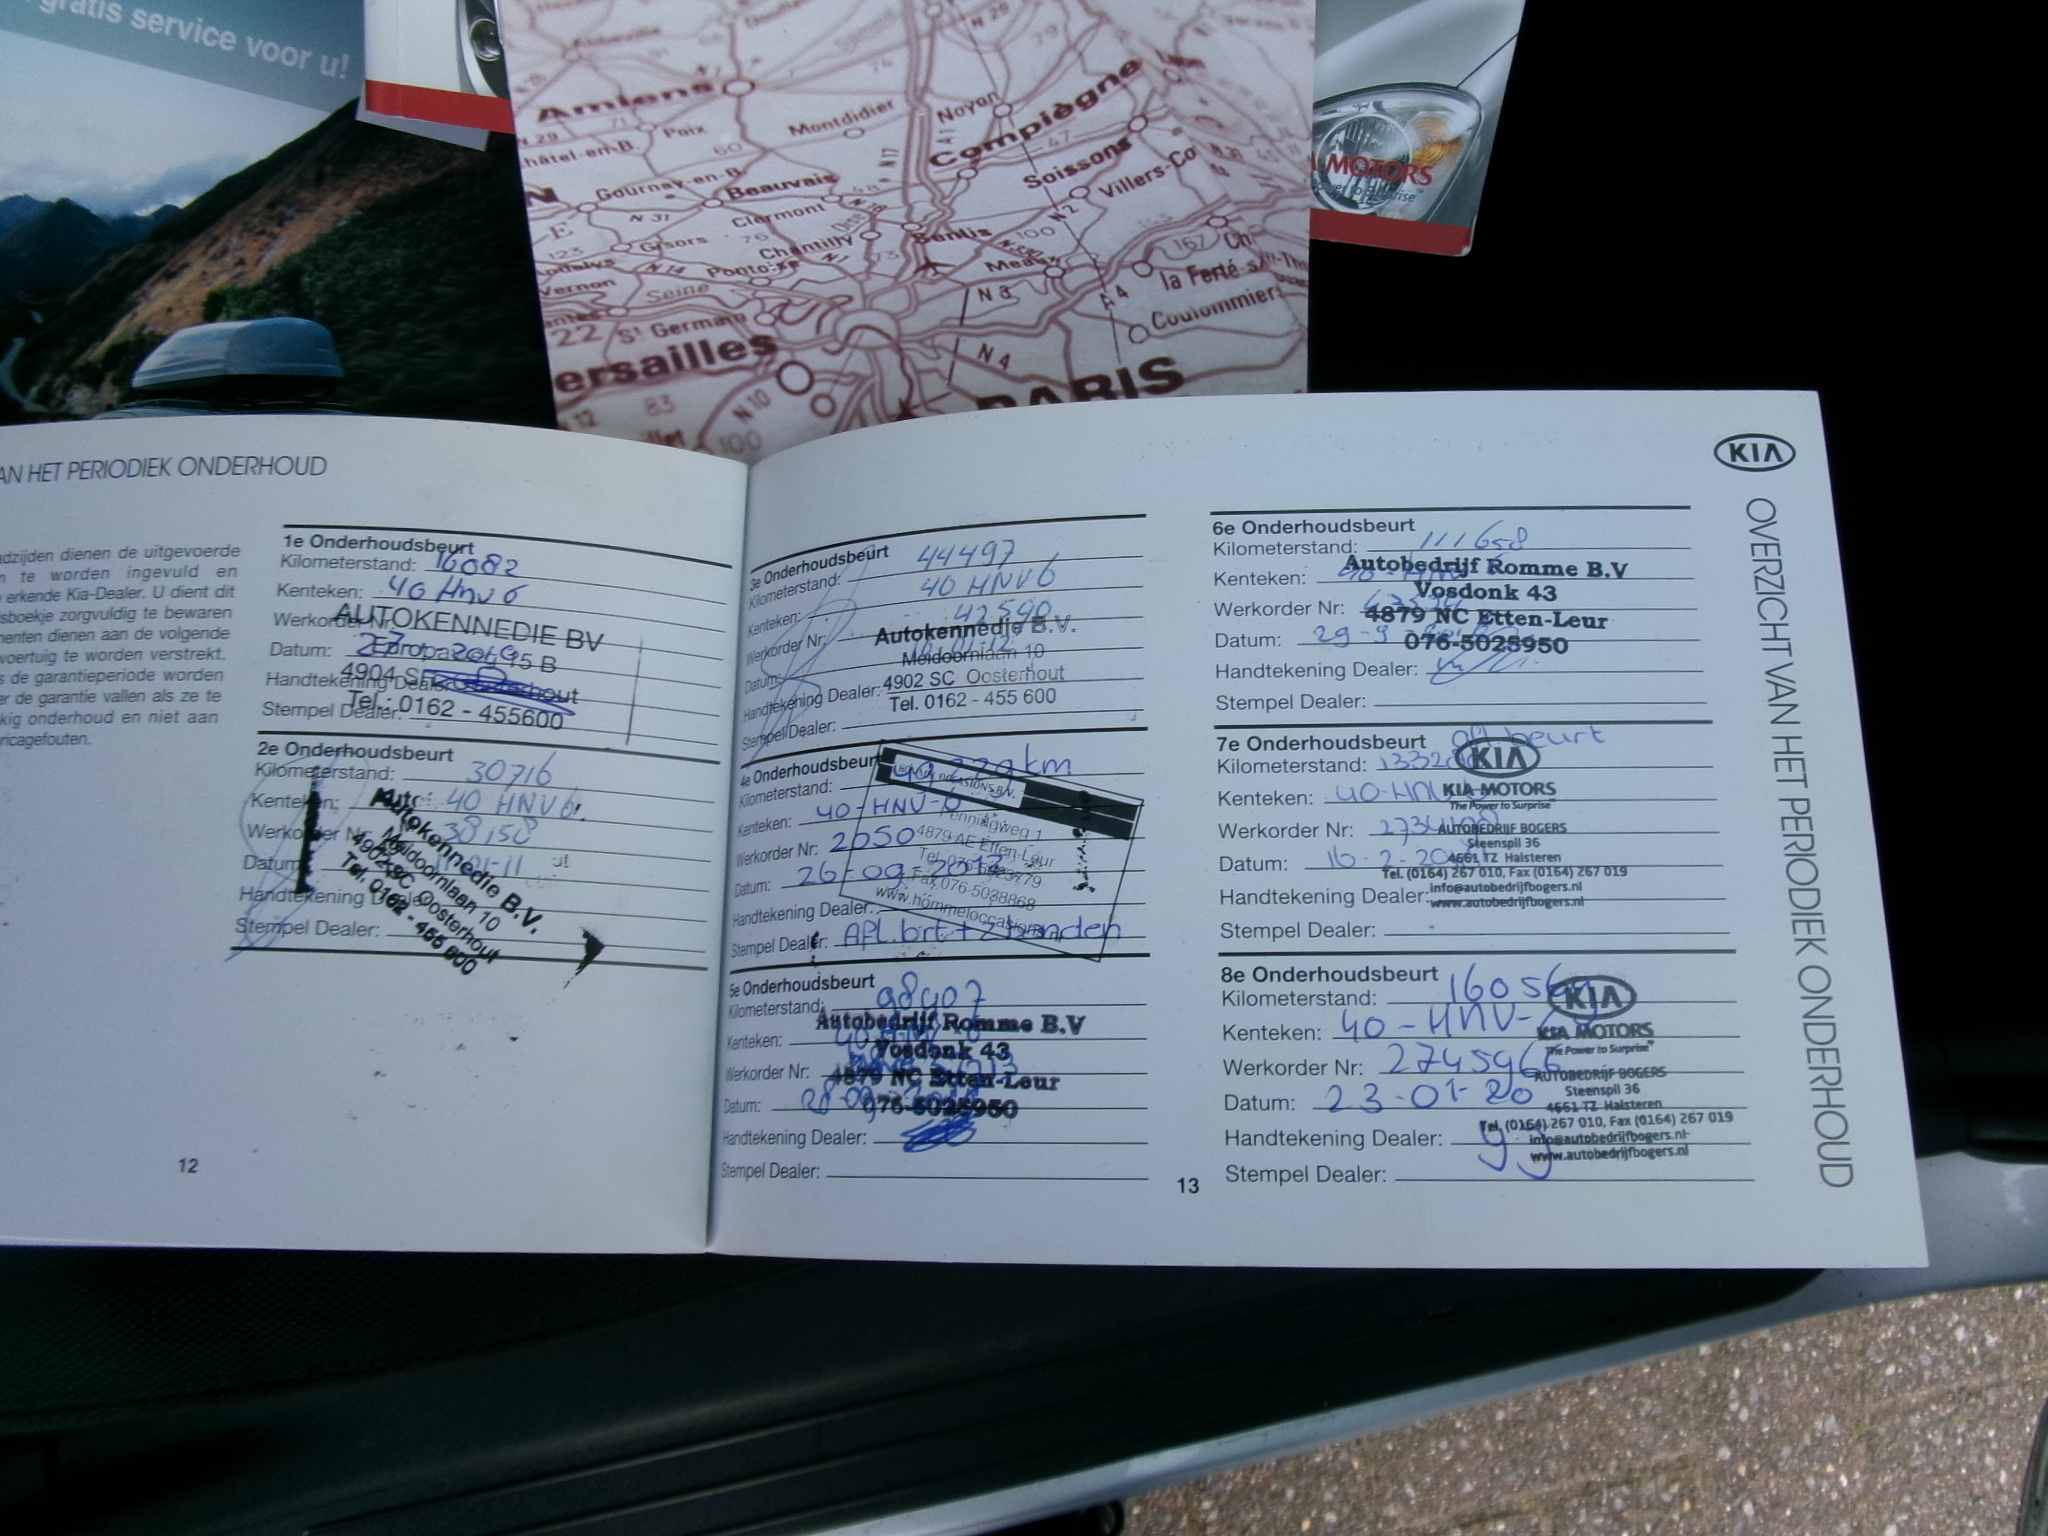 gratis service voor u!
Amiens
N 29
N 1
71
Poix
Montdidier
Noyon
Compiègne
47
Soissons
N 29
79
hâtel-en-B.
60
A1
N 17
Villers-Co
Gournay-en-B.
Beauvais
N 31
Clermont
Oise
N 16
N 2
Gisors
76
Chantilly
Senlis
100
N 14
Pontoise
N 1
73
Meaux
167
Ch
Vernon
Seine
la Ferté-s
22
St Germain
N 3
A 4
Coulommiers
ersailles
N 4
83
N 10
PARIS
12
100
MOTORS
AN HET PERIODIEK ONDERHOUD
dzijden dienen de uitgevoerde
n te worden ingevuld en
erkende Kia-Dealer. U dient dit
sboekje zorgvuldig te bewaren
menten dienen aan de volgende
voertuig te worden verstrekt.
s de garantieperiode worden
er de garantie vallen als ze te
kig onderhoud en niet aan
ricagefouten.
1e Onderhoudsbeurt
Kilometerstand: 16082
Kenteken: 40 HNV 6
Werkorder Nr:
Datum:
Handtekening Dealer:
Stempel Dealer:
AUTOKENNEDIE BV
Europa 15 B
4904 S Oosterhout
Tel.: 0162 - 455600
2e Onderhoudsbeurt
Kilometerstand: 30716
Kenteken: 40 HNV 6
Werkorder Nr: 38158
Datum: 01-11
Handtekening Dealer:
Stempel Dealer:
Autokennedie B.V.
Meidoornlaan 10
4902 SC Oosterhout
Tel. 0162 - 455 600
12
3e Onderhoudsbeurt
Kilometerstand: 44497
Kenteken: 40 HNV 6
Werkorder Nr: 42590
Datum:
Handtekening Dealer:
Stempel Dealer:
Autokennedie B.V.
Meidoornlaan 10
4902 SC Oosterhout
Tel. 0162 - 455 600
4e Onderhoudsbeurt
Kilometerstand: 49229 km
Kenteken: 40-HNV-6
Werkorder Nr: 2050
Datum: 26-09-2012
Handtekening Dealer:
Stempel Dealer: Afl. brt + 2 banden
Penningweg 1
4879 AE Etten-Leur
Fax 076-5038868
www.hommeloccasions.nl
5e Onderhoudsbeurt
Kilometerstand: 98907
Kenteken: 40 HNV 6
Werkorder Nr:
Datum:
Handtekening Dealer:
Stempel Dealer:
Autobedrijf Romme B.V
Vosdonk 43
4879 NC Etten-Leur
076-5025950
13
KIA
OVERZICHT VAN HET PERIODIEK ONDERHOUD
6e Onderhoudsbeurt
Kilometerstand: 111658
Kenteken: 40-HNV
Werkorder Nr:
Datum: 29-9
Handtekening Dealer:
Stempel Dealer:
Autobedrijf Romme B.V
Vosdonk 43
4879 NC Etten-Leur
076-5025950
7e Onderhoudsbeurt afl. beurt
Kilometerstand:
Kenteken: 40-HNV
Werkorder Nr:
Datum: 16-2-20
Handtekening Dealer:
Stempel Dealer:
KIA
KIA MOTORS
The Power to Surprise
AUTOBEDRIJF BOGERS
Steenspil 36
4661 TZ Halsteren
Tel. (0164) 267 010, Fax (0164) 267 019
info@autobedrijfbogers.nl
www.autobedrijfbogers.nl
8e Onderhoudsbeurt
Kilometerstand: 160569
Kenteken: 40-HNV-
Werkorder Nr: 2745966
Datum: 23-01-20
Handtekening Dealer:
Stempel Dealer:
KIA
KIA MOTORS
The Power to Surprise
AUTOBEDRIJF BOGERS
Steenspil 36
4661 TZ Halsteren
Tel. (0164) 267 010, Fax (0164) 267 019
info@autobedrijfbogers.nl
www.autobedrijfbogers.nl